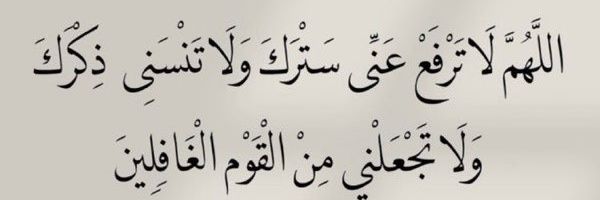 اللَّهُمَّ لَا تَرْفَعْ عَنِّى سَتْرَكَ وَلَا تَنْسَنِى ذِكْرَكَ
وَلَا تَجْعَلْنِي مِنْ الْقَوْمِ الْغَافِلِينَ